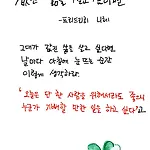 값진 삶을 살고 싶다면
-프리드리히 니체-
그대가 값진 삶을 살고 싶다면
날마다 아침에 눈뜨는 순간
이렇게 생각하라.
"오늘은 단 한 사람을 위해서라도 좋으니
누군가 기뻐할 만한 일을 하고 싶다고."